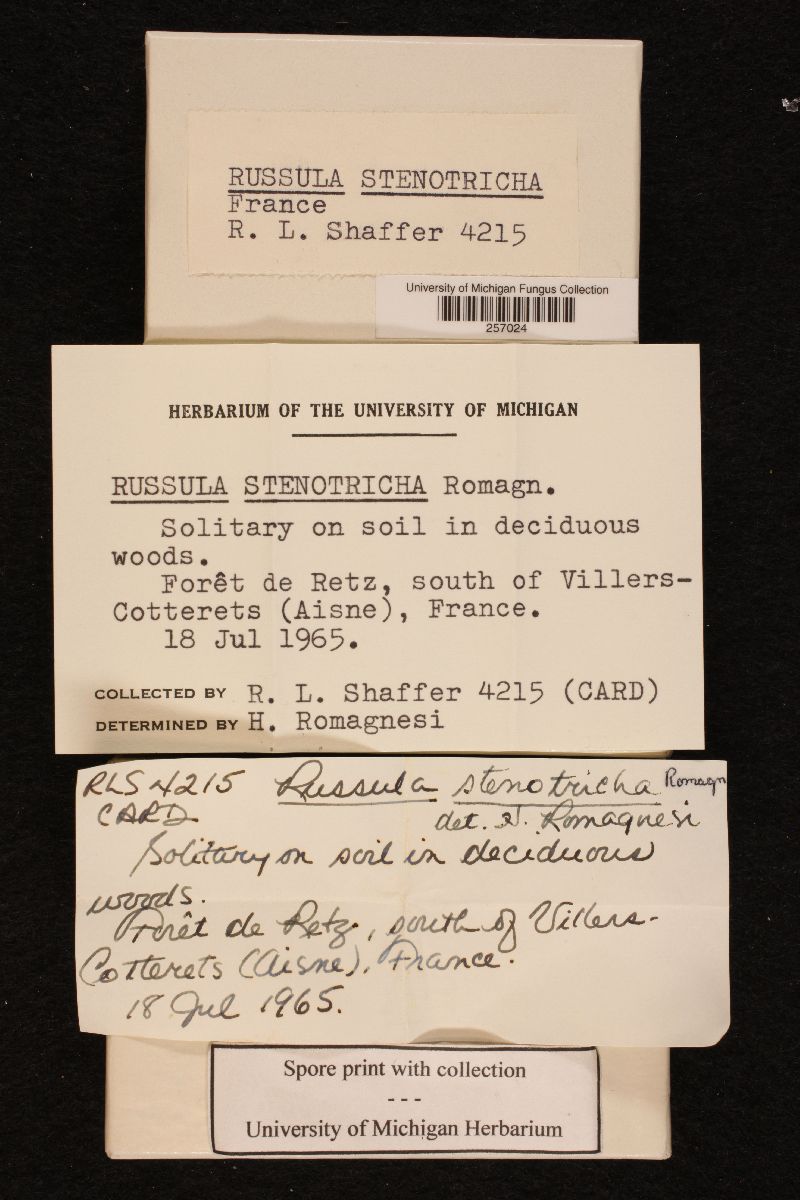 RUSSULA STENOTRICHA
France
R. L. Shaffer 4215
University of Michigan Fungus Collection
257024
HERBARIUM OF THE UNIVERSITY OF MICHIGAN
RUSSULA STENOTRICHA Romagn.
Solitary on soil in deciduous
woods.
Forêt de Retz, south of Villers-
Cotterets (Aisne), France.
18 Jul 1965.
COLLECTED BY R. L. Shaffer 4215 (CARD)
DETERMINED BY H. Romagnesi
RLS 4215 Russula stenotricha Romagn
CARD det. H. Romagnesi
Solitary on soil in deciduous
woods.
Forêt de Retz, south of Villers-
Cotterets (Aisne), France.
18 Jul 1965.
Spore print with collection
---
University of Michigan Herbarium